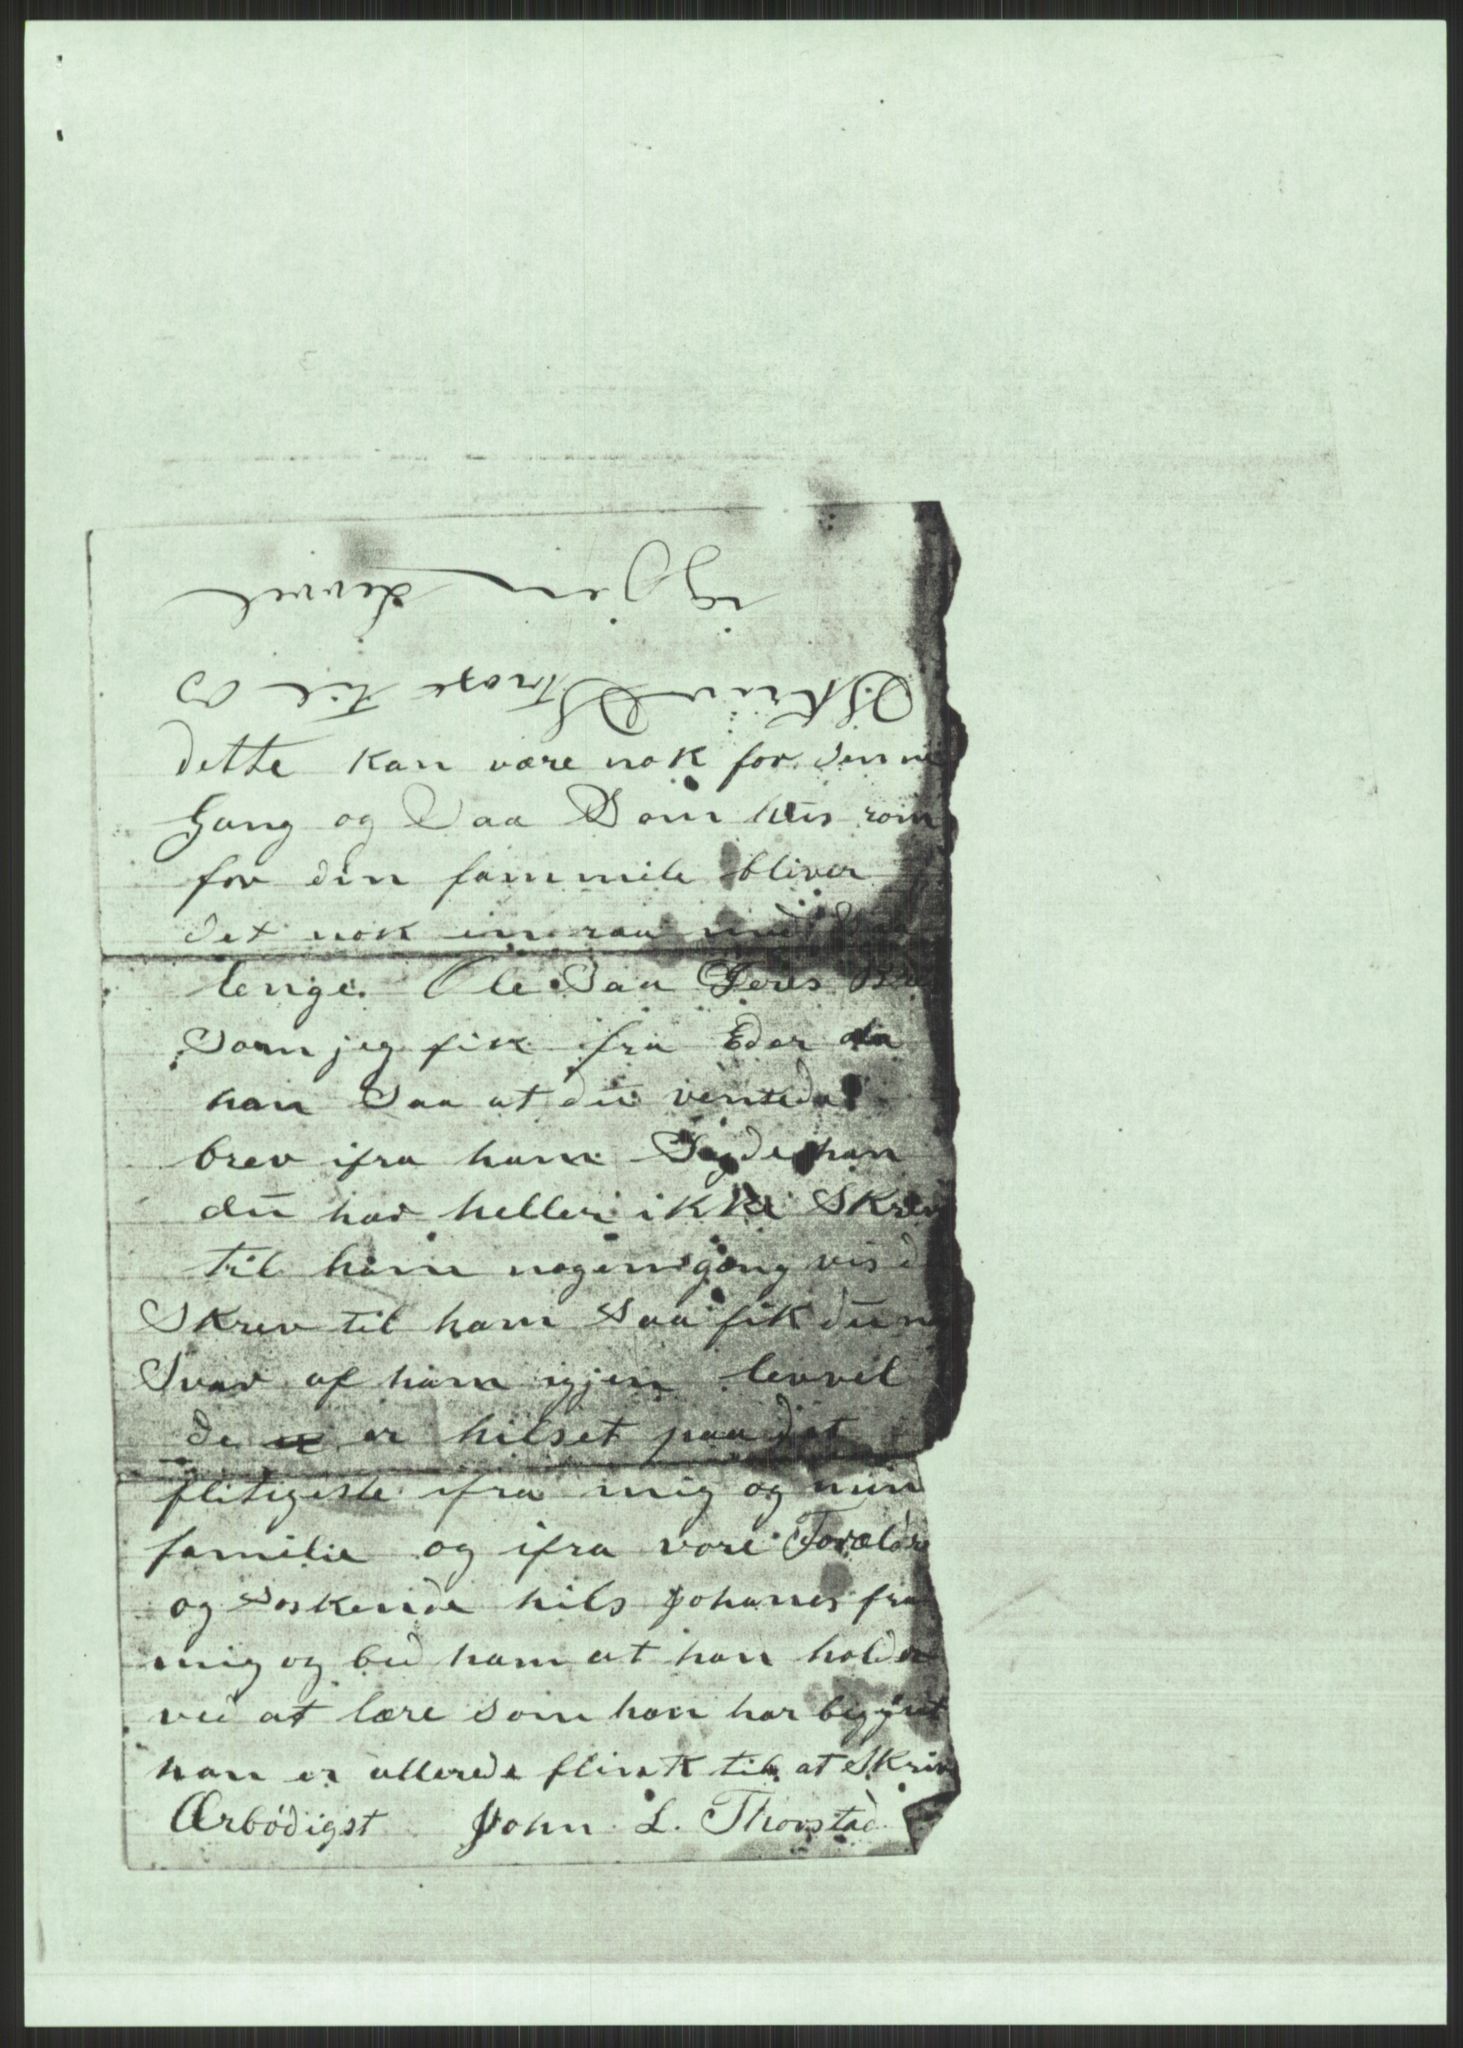 Skriv Strax til os
igjen Levvel
dette kan være nok for denne
Gang og Saa Som
for din fammile bliver
det nok
lenge. Ole Saa Deres
Som jeg fik fra Eder da
han Saa at du ventede
brev ifra ham Sagde han
du har heller ikke Skrev
til ham nogengang vis d
Skrev til ham Saa fik du
Svar af ham igjen levvel
de er hilset paa det
flitigeste ifra mig og min
familie og ifra vore Foreldre
og Søskende hils Johanes fra
mig og bed ham at han holder
ved at lære som han har begynt
han er allerede flink til at Skriv
Ærbödigst John L. Thorstad